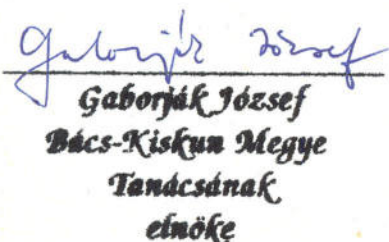 Gaborják József
Gaborják József
Bács-Kiskun Megye
Tanácsának
elnöke